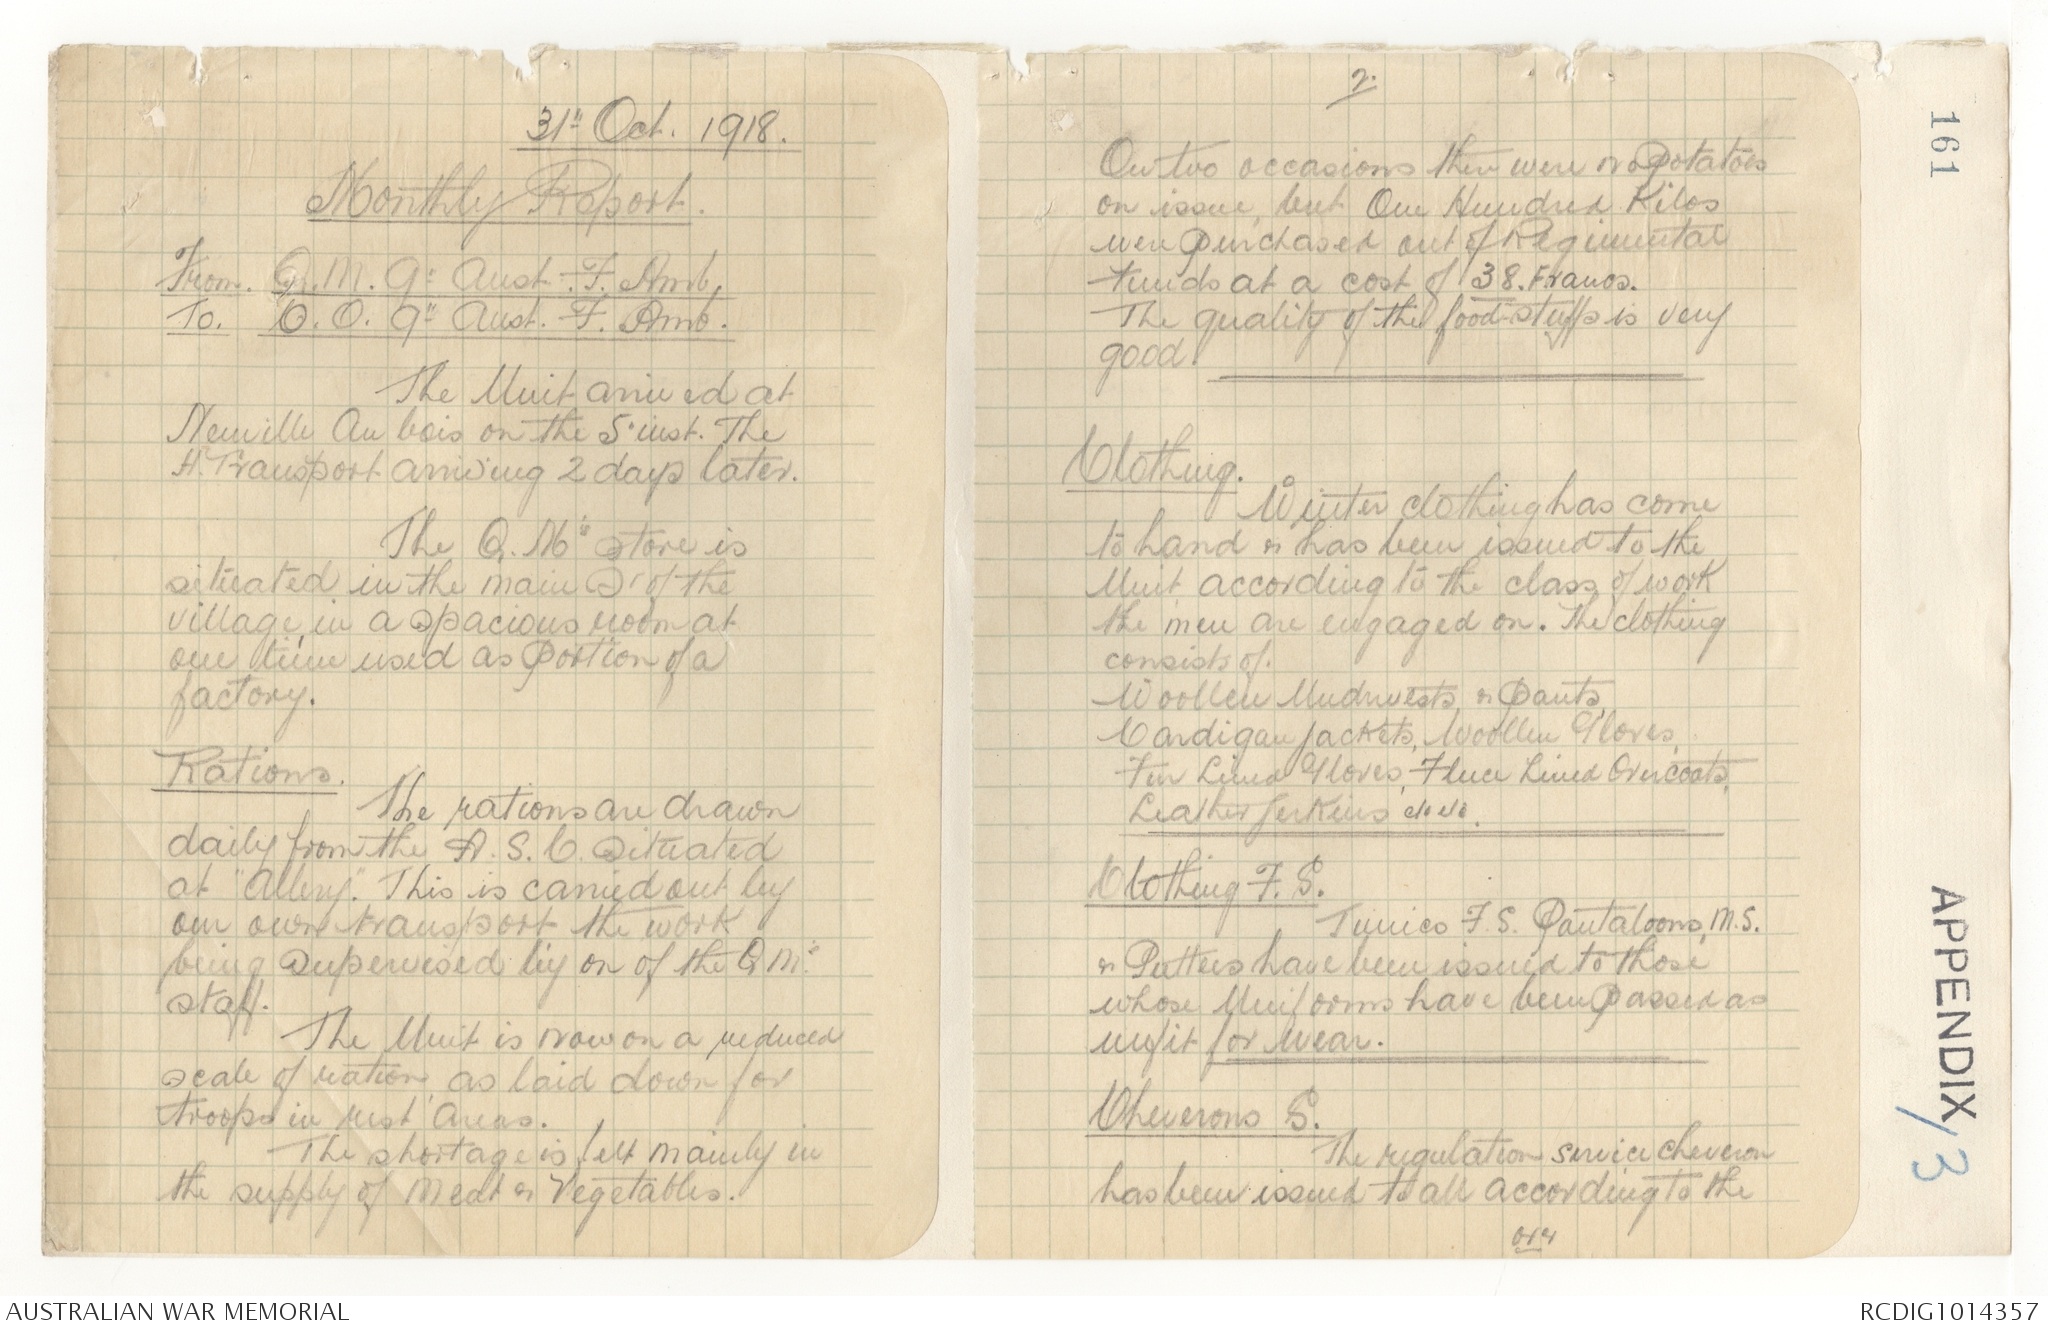 31st Oct. 1918.
Monthly Report.
From. Q. M. 9th Aust. F. Amb.
To. C. O. 9th Aust. F. Amb.
The Unit arrived at
Neuville Au bois on the 5th inst. The
H. Transport arriving 2 days later.
The Q. M's store is
situated in the main St of the
village, in a spacious room at
one time used as portion of a
factory.
Rations.
The rations are drawn
daily from the A. S. C. situated
at "Allery". This is carried out by
our own transport the work
being supervised by on of the Q M's
staff.
The Unit is now on a reduced
scale of ration as laid down for
troops in rest areas.
The shortage is felt mainly in
the supply of Meat & Vegetables.
2.
On two occasions there were no potatoes
on issue, but One Hundred Kilos
were purchased out of Regimental
Funds at a cost of 38. Francs.
The quality of the food stuffs is very
good.
Clothing.
Winter clothing has come
to hand & has been issued to the
Unit according to the class of work
the men are engaged on. The clothing
consists of.
Woollen Undervests, & Pants,
Cardigan Jackets, Woollen Gloves,
Fur Lined Gloves, Fleece Lined Overcoats,
Leather Jerkins etc etc.
Clothing F. S.
Tunics F. S. Pantaloons, M. S.
& Putters have been issued to those
whose Uniforms have been passed as
unfit for wear.
Cheverons S.
The regulation service cheveron
has been issued to all according to the
161
APPENDIX
13
AUSTRALIAN WAR MEMORIAL
RCDIG1014357